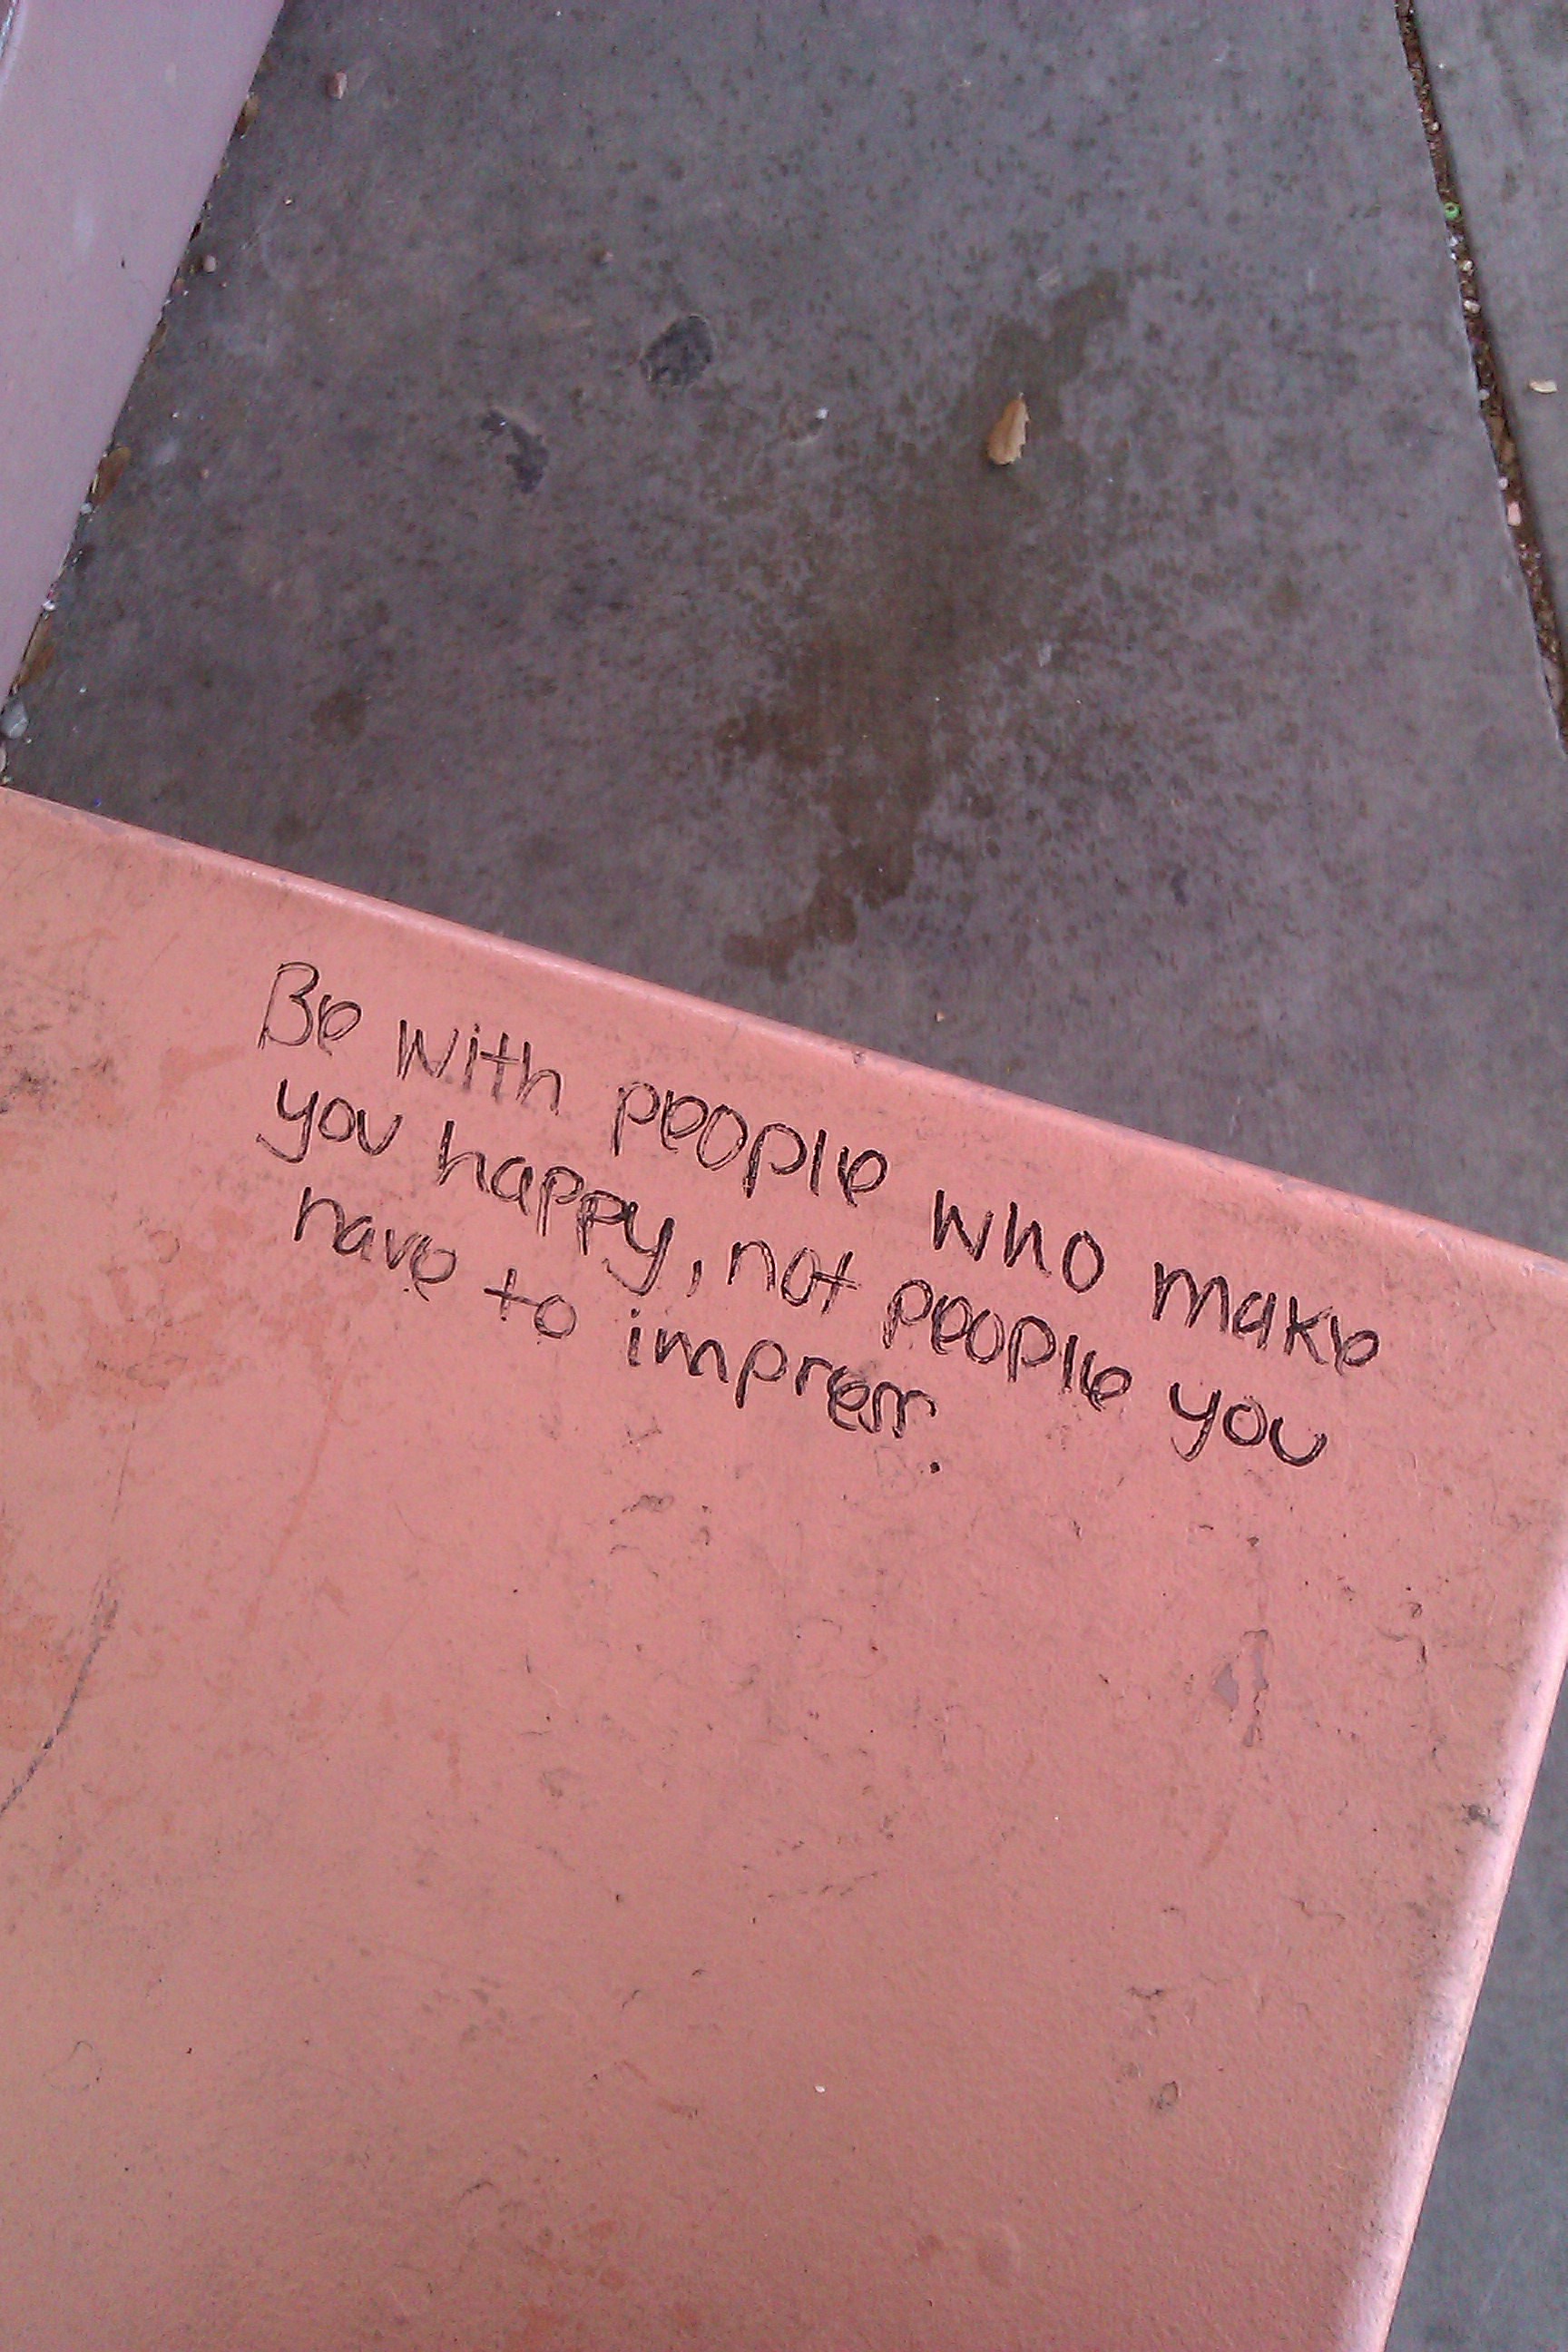 Be with people who make
you happy, not people you
have to impress.